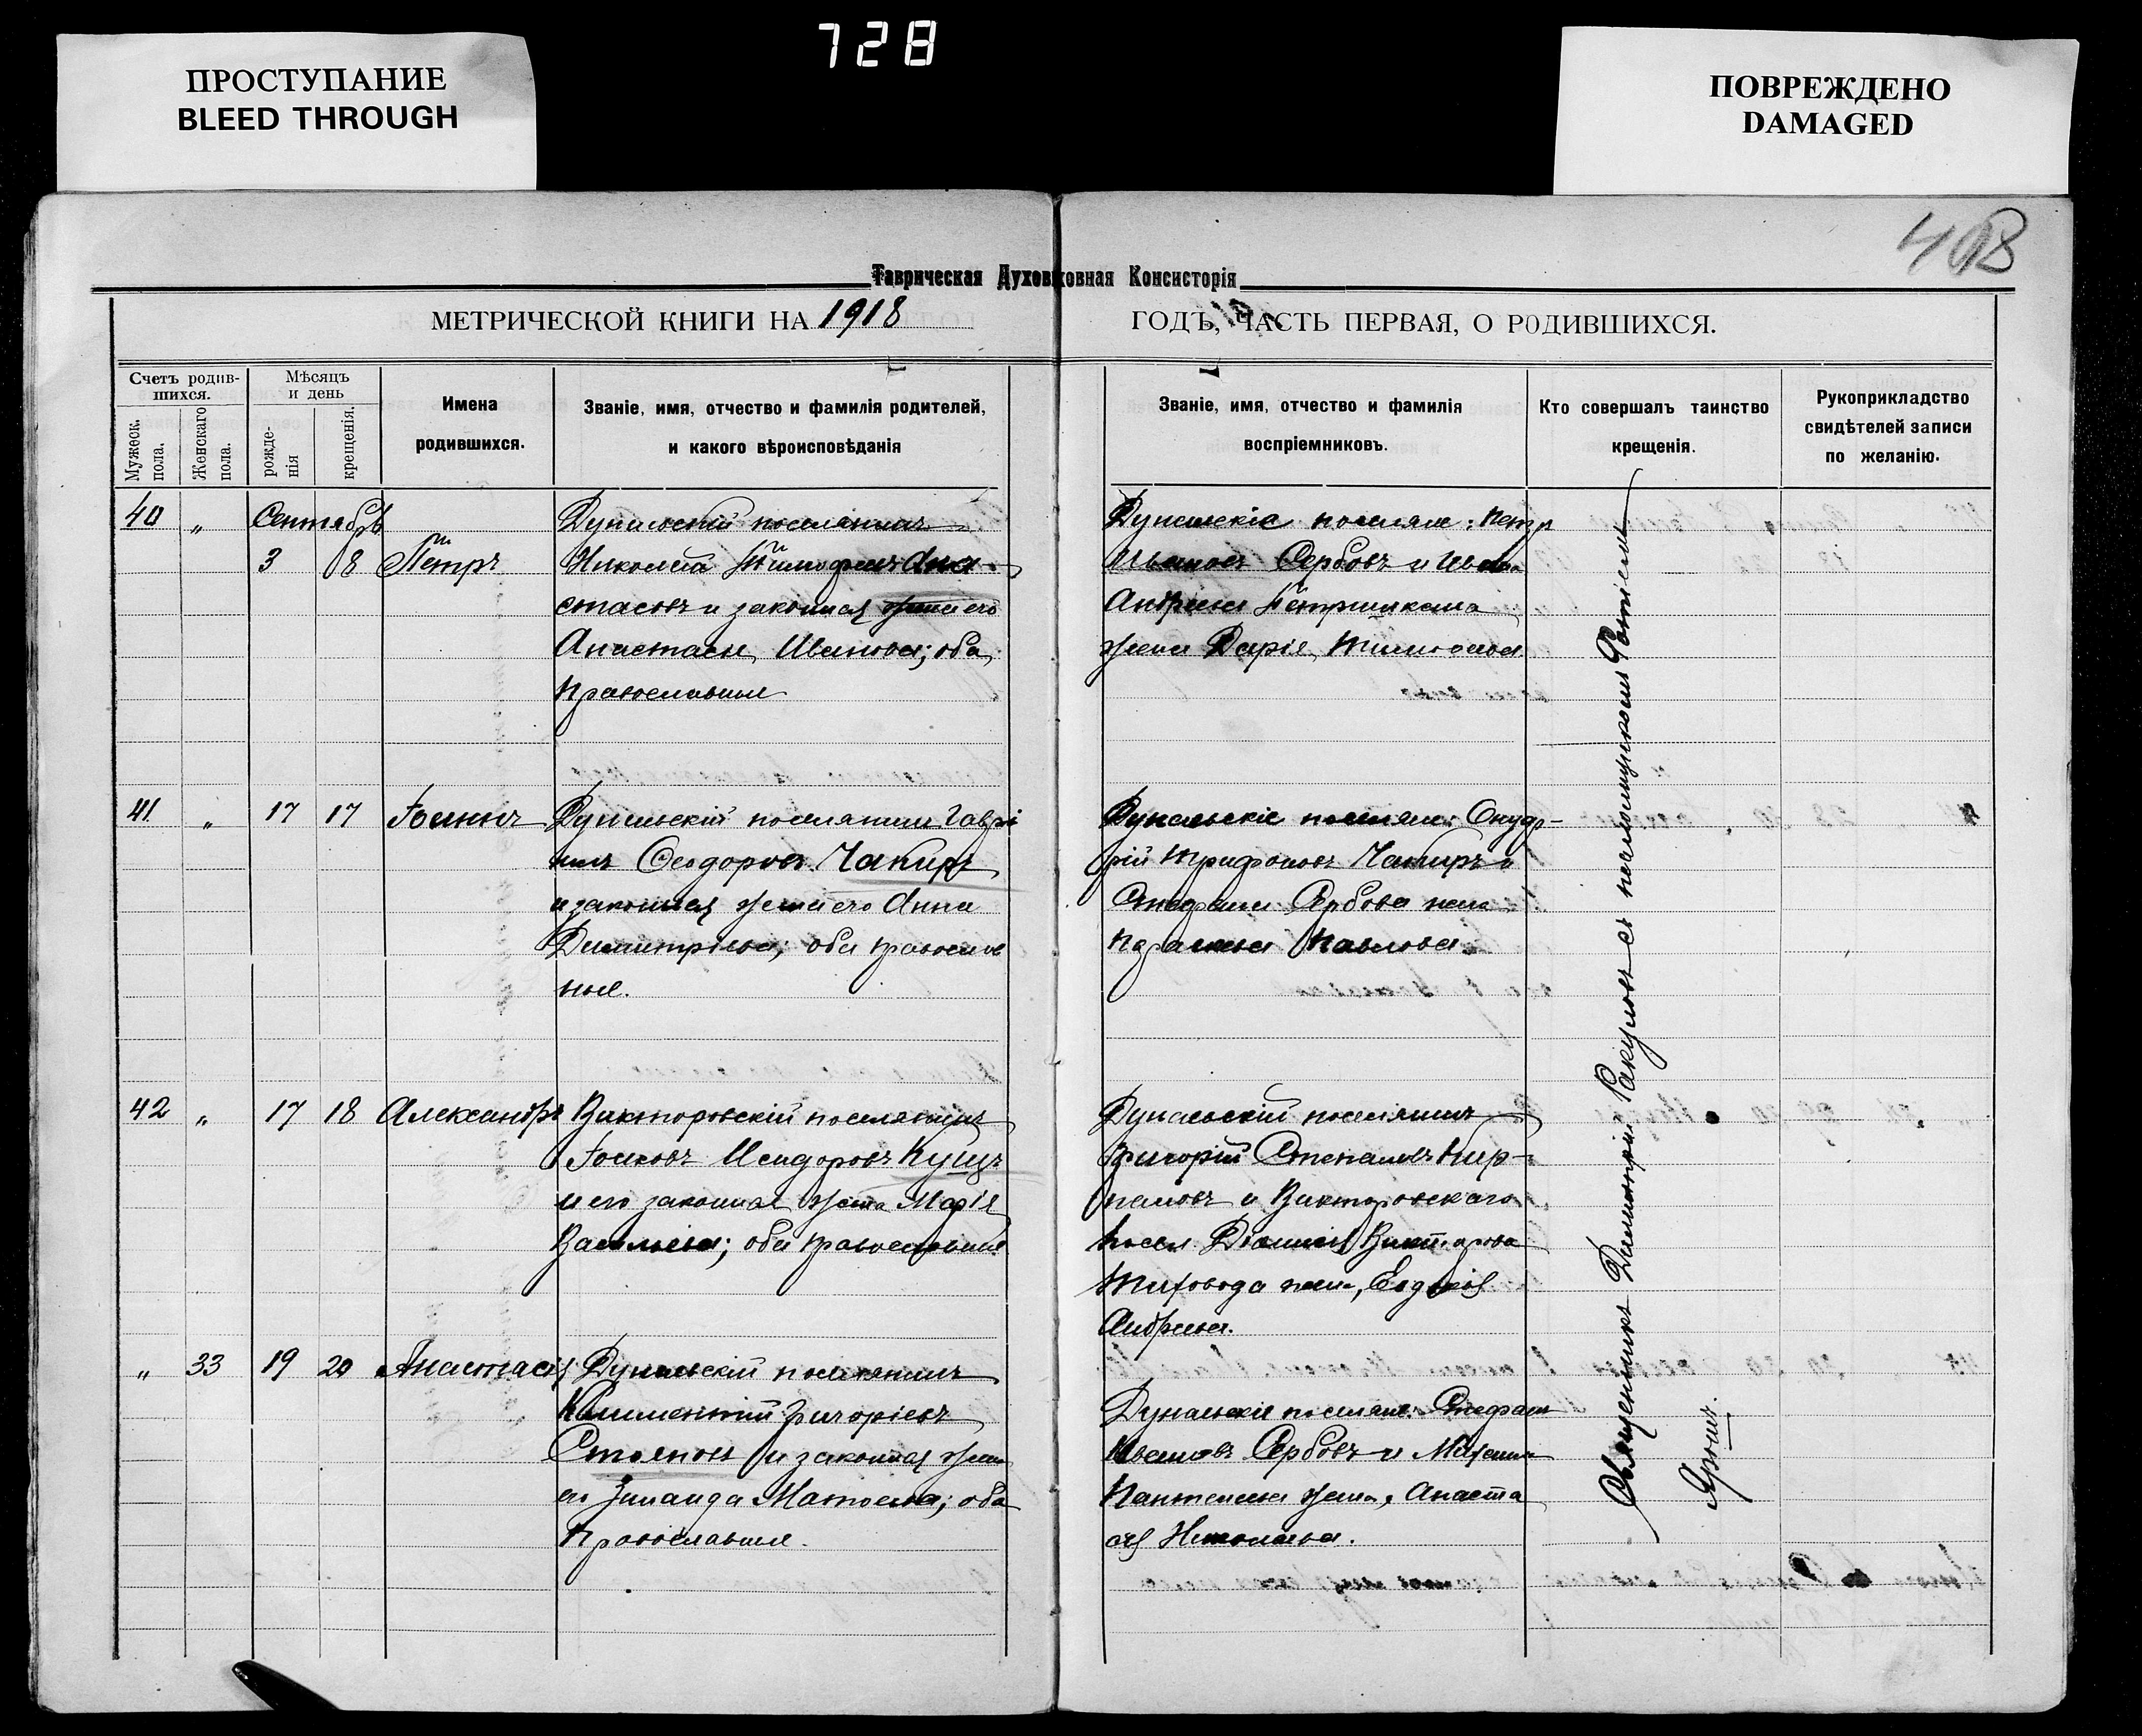 728
ПРОСТУПАНИЕ
BLEED THROUGH
ПОВРЕЖДЕНО
DAMAGED
Таврическая Духовная Консисторія
МЕТРИЧЕСКОЙ КНИГИ НА 1918 ГОДЪ, ЧАСТЬ ПЕРВАЯ, О РОДИВШИХСЯ.
Счетъ родив-
шихся.
Мужеск. пола.
Женскаго пола.
Мѣсяцъ
и день
рожде-
нія
крещенія.
Имена
родившихся.
Званіе, имя, отчество и фамилія родителей,
и какого вѣроисповѣданія
Званіе, имя, отчество и фамилія
воспріемниковъ.
Кто совершалъ таинство
крещенія.
Рукоприкладство
свидѣтелей записи
по желанію.
40 „ Сентябрь
3 8 Петръ
Дунаевскій поселянинъ
Николай
стасовъ и законная жена его
Анастасія Иванова; оба
православные
Дунаевскіе поселяне: Петр
Ивановъ Сербовъ и Ивана
Андреева
жена Дарія
41 „ 17 17 Іоаннъ
Дунаевскій поселянинъ Гаврі
илъ Феодоровъ Чакиръ
и законная жена его Анна
Димитріева; оба православ
ные.
Дунаевскіе поселяне: Онуф-
рій Трифоновъ Чакиръ и
Стефана Сербова жена
Параскева Павлова
42 „ 17 18 Александръ
Викторовскій поселянинъ
Іаковъ Исидоровъ Кущъ
и его законная жена Марія
Васильева; оба православные
Дунаевскій поселянинъ
Григорій Степановъ Кир-
и Викторовскаго
посел. Діонисія
жена, Евдокія
Андреева.
„ 33 19 20 Анастасія
Дунаевскій поселянинъ
Климентій Григоріевъ
Стояновъ и законная жена
его Зинаида Матвеева; оба
православные.
Дунаевскіе поселяне: Стефанъ
Ивановъ Сербовъ и Михаила
Пантелеева жена, Анаста
сія Николаева.
Священникъ Димитрій Ракуловъ съ псаломщикомъ